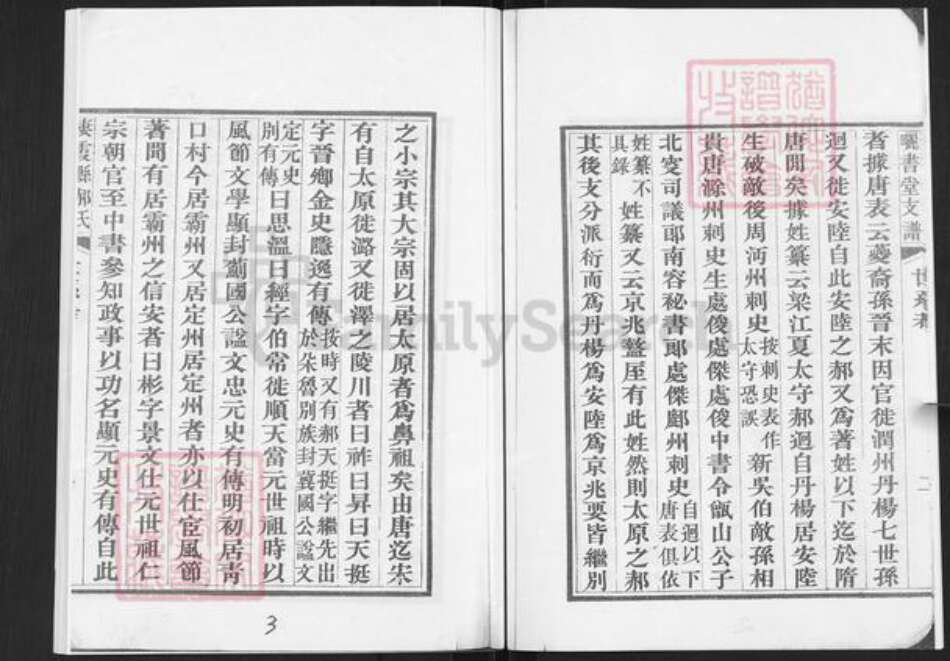 曬書堂支譜
世系考
二
者據唐表云夔裔孫晉末因官徙潤州丹楊七世孫
迥又徙安陸自此安陸之郝又爲著姓以下迄於隋
唐閒矣據姓纂云梁江夏太守郝迥自丹楊居安陸
生破敵後周沔州刺史按刺史表作太守恐誤新吳伯敵孫相
貴唐滁州刺史生處俊處傑處俊中書令甑山公子
北叟司議郎南容秘書郎處傑郢州刺史自迥以下唐表俱依
姓纂不具錄姓纂又云京兆盩厔有此姓然則太原之郝
其後支分派衍而爲丹楊爲安陸爲京兆要皆繼別
之小宗其大宗固以居太原者爲鼻祖矣由唐迄宋
有自太原徙潞又徙澤之陵川者曰祚曰昇曰天挺
字晉鄉金史隱逸有傳按時又有郝天挺字繼先出於朵魯別族封冀國公諡文
定元史別有傳曰思溫曰經字伯常徙順天當元世祖時以
風節文學顯封薊國公諡文忠元史有傳明初居青
口村今居霸州又居定州居定州者亦以仕宦風節
著聞有居霸州之信安者曰彬字景文仕元世祖仁
宗朝官至中書參知政事以功名顯元史有傳自此
棲霞縣郝氏
3
FamilySearch